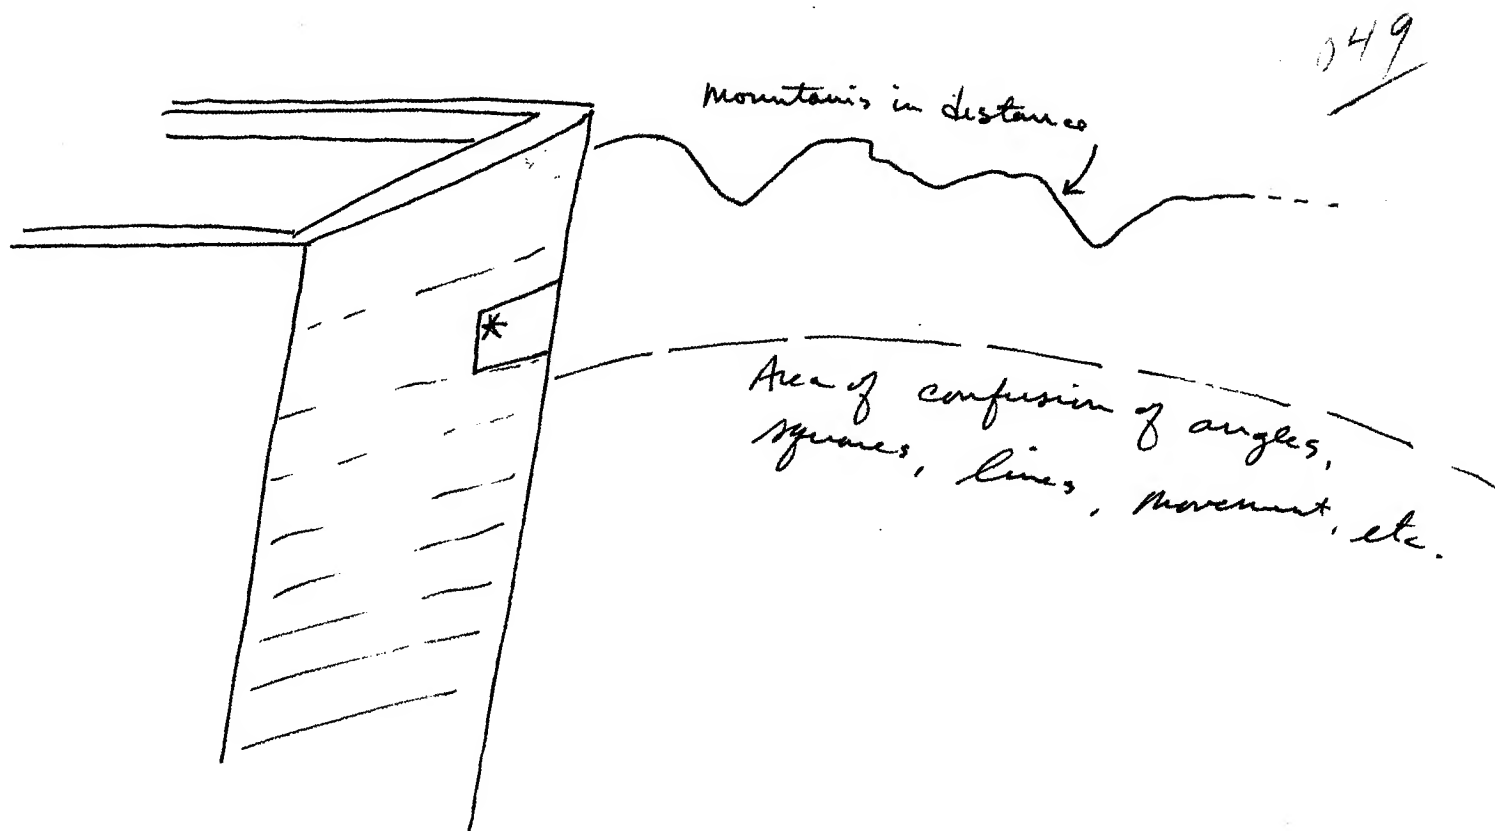 049
Mountains in distance
*
Area of confusion of angles,
squares, lines, movement, etc.